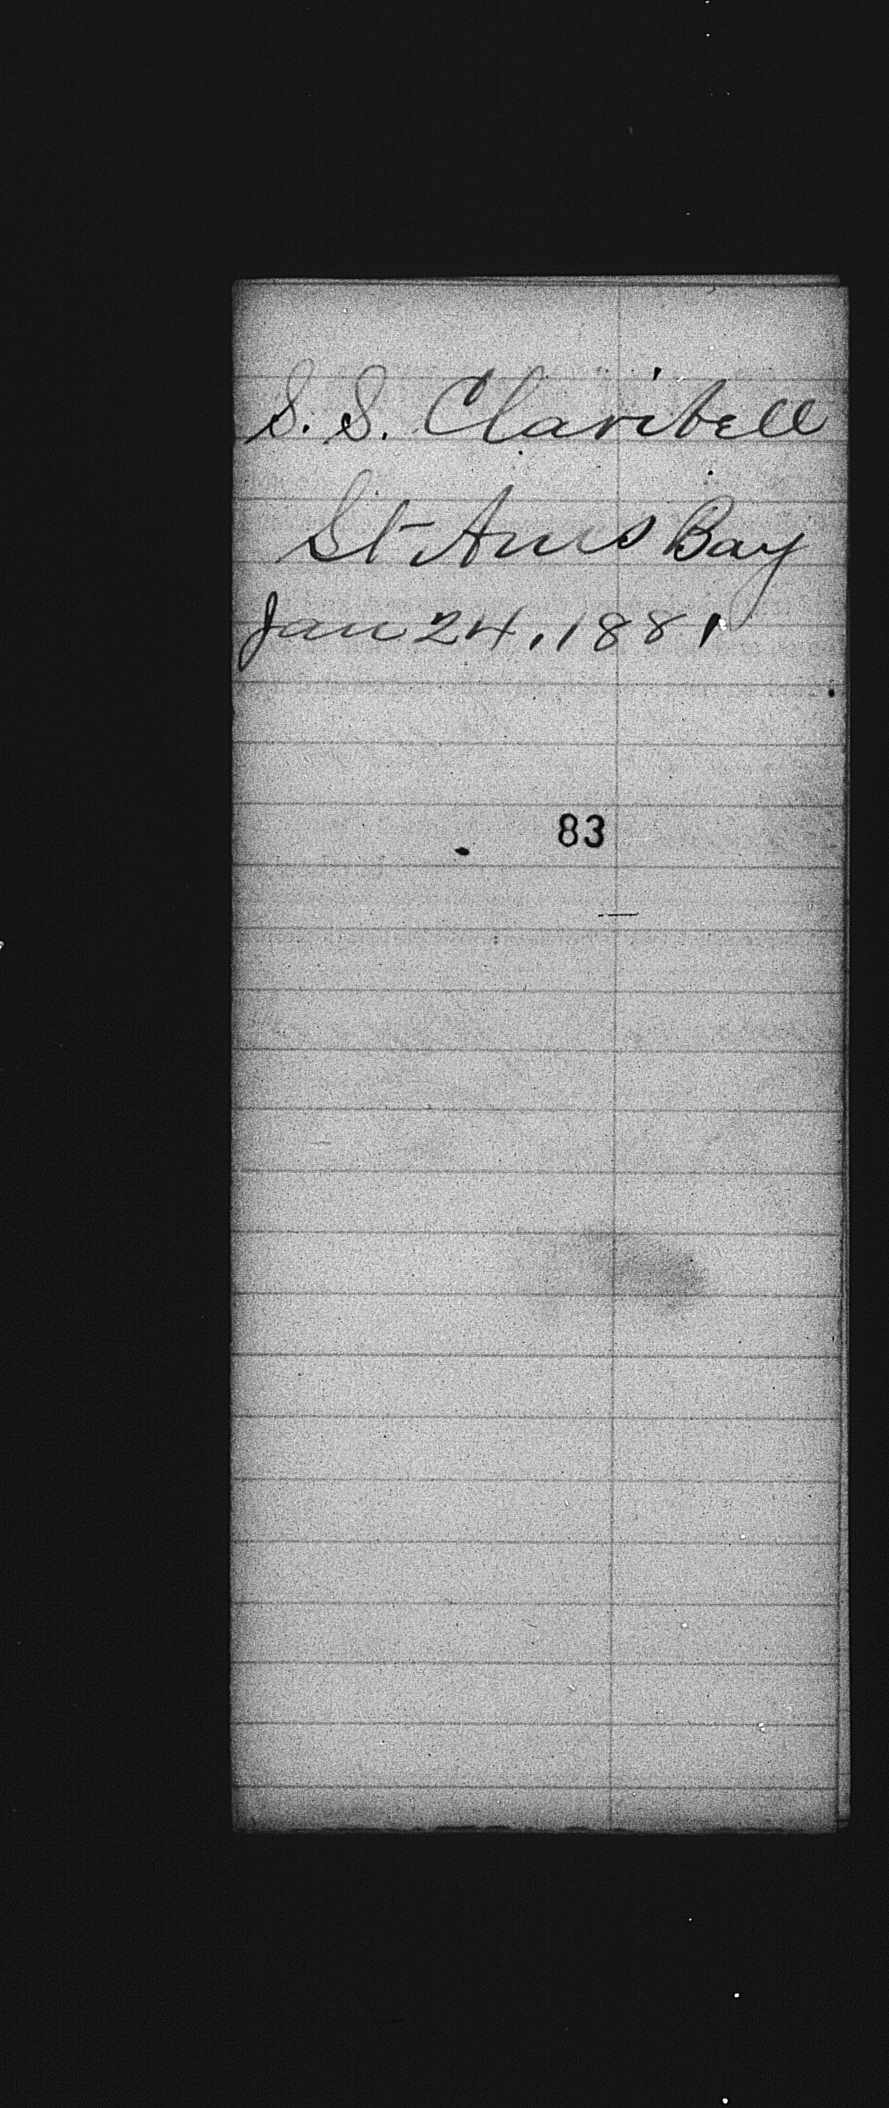 S. S. Claribell
St Anns Bay
Jan 24, 1881
83